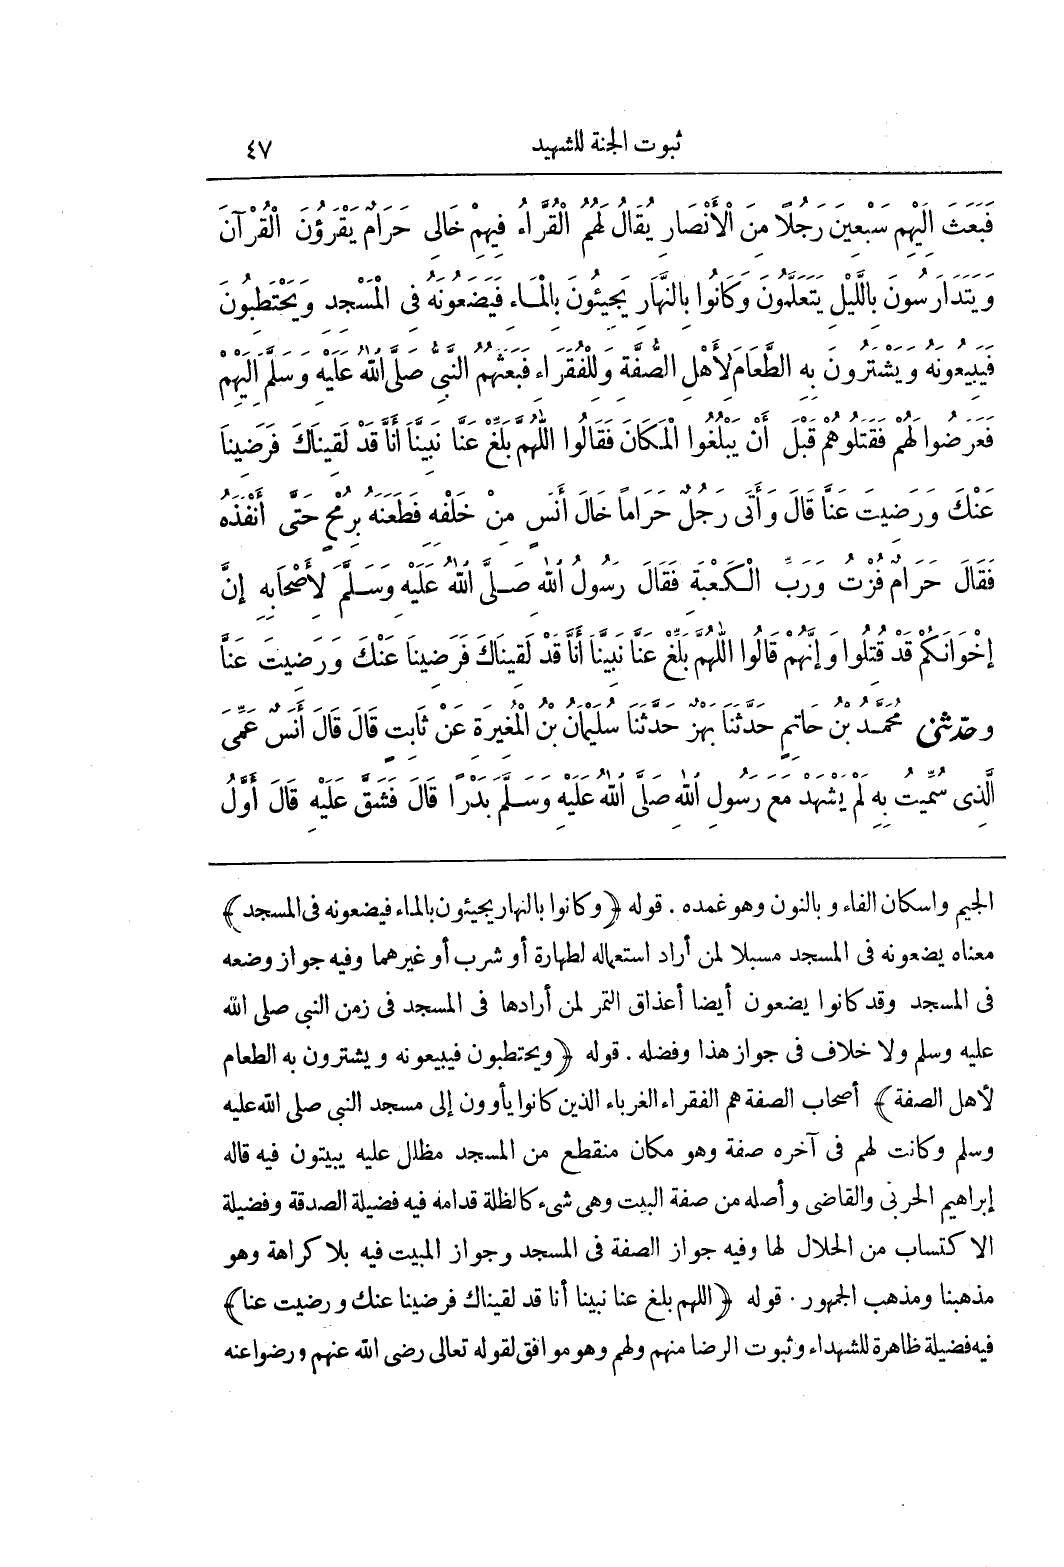 ثبوت الجنة للشهيد ٤٧
فَبَعَثَ اِلَيْهِمْ سَبْعِينَ رَجُلًا مِنَ الْأَنْصَارِ يُقَالُ لَهُمُ الْقُرَّاءُ فِيهِمْ خَالِى حَرَامٌ يَقْرَؤُنَ الْقُرْآنَ
وَيَتَدَارَسُونَ بِاللَّيْلِ يَتَعَلَّمُونَ وَكَانُوا بِالنَّهَارِ يَجِيئُونَ بِالْمَاءِ فَيَضَعُونَهُ فِى الْمَسْجِدِ وَيَحْتَطِبُونَ
فَيَبِيعُونَهُ وَيَشْتَرُونَ بِهِ الطَّعَامَ لِأَهْلِ الصُّفَّةِ وَلِلْفُقَرَاءِ فَبَعَثَهُمُ النَّبِىُّ صَلَّى اللهُ عَلَيْهِ وَسَلَّمَ اِلَيْهِمْ
فَعَرَضُوا لَهُمْ فَقَتَلُوهُمْ قَبْلَ أَنْ يَبْلُغُوا الْمَكَانَ فَقَالُوا اللّٰهُمَّ بَلِّغْ عَنَّا نَبِيَّنَا أَنَّا قَدْ لَقِينَاكَ فَرَضِينَا
عَنْكَ وَرَضِيتَ عَنَّا قَالَ وَأَتَى رَجُلٌ حَرَامًا خَالَ أَنَسٍ مِنْ خَلْفِهِ فَطَعَنَهُ بِرُمْحٍ حَتَّى أَنْفَذَهُ
فَقَالَ حَرَامٌ فُزْتُ وَرَبِّ الْكَعْبَةِ فَقَالَ رَسُولُ اللهِ صَلَّى اللهُ عَلَيْهِ وَسَلَّمَ لِأَصْحَابِهِ إِنَّ
إِخْوَانَكُمْ قَدْ قُتِلُوا وَإِنَّهُمْ قَالُوا اللّٰهُمَّ بَلِّغْ عَنَّا نَبِيَّنَا أَنَّا قَدْ لَقِينَاكَ فَرَضِينَا عَنْكَ وَرَضِيتَ عَنَّا
وحَدَّثَنِى مُحَمَّدُ بْنُ حَاتِمٍ حَدَّثَنَا بَهْزٌ حَدَّثَنَا سُلَيْمَانُ بْنُ الْمُغِيرَةِ عَنْ ثَابِتٍ قَالَ قَالَ أَنَسٌ عَمِّىَ
الَّذِى سُمِّيتُ بِهِ لَمْ يَشْهَدْ مَعَ رَسُولِ اللهِ صَلَّى اللهُ عَلَيْهِ وَسَلَّمَ بَدْرًا قَالَ فَشَقَّ عَلَيْهِ قَالَ أَوَّلُ
الجيم واسكان الفاء وبالنون وهو غمده . قوله ﴿وكانوا بالنهار يجيئون بالماء فيضعونه فى المسجد﴾
معناه يضعونه فى المسجد مسبلا لمن أراد استعماله لطهارة أو شرب أو غيرهما وفيه جواز وضعه
فى المسجد وقد كانوا يضعون أيضا أعذاق التمر لمن أرادها فى المسجد فى زمن النبى صلى الله
عليه وسلم ولا خلاف فى جواز هذا وفضله . قوله ﴿ويحتطبون فيبيعونه ويشترون به الطعام
لأهل الصفة﴾ أصحاب الصفة هم الفقراء الغرباء الذين كانوا يأوون إلى مسجد النبى صلى الله عليه
وسلم وكانت لهم فى آخره صفة وهو مكان منقطع من المسجد مظلل عليه يبيتون فيه قاله
إبراهيم الحربى والقاضى وأصله من صفة البيت وهى شىء كالظلة قدامه فيه فضيلة الصدقة وفضيلة
الاكتساب من الحلال لها وفيه جواز الصفة فى المسجد وجواز المبيت فيه بلا كراهة وهو
مذهبنا ومذهب الجمهور . قوله ﴿اللهم بلغ عنا نبينا أنا قد لقيناك فرضينا عنك ورضيت عنا﴾
فيه فضيلة ظاهرة للشهداء وثبوت الرضا منهم ولهم وهو موافق لقوله تعالى رضى الله عنهم ورضوا عنه